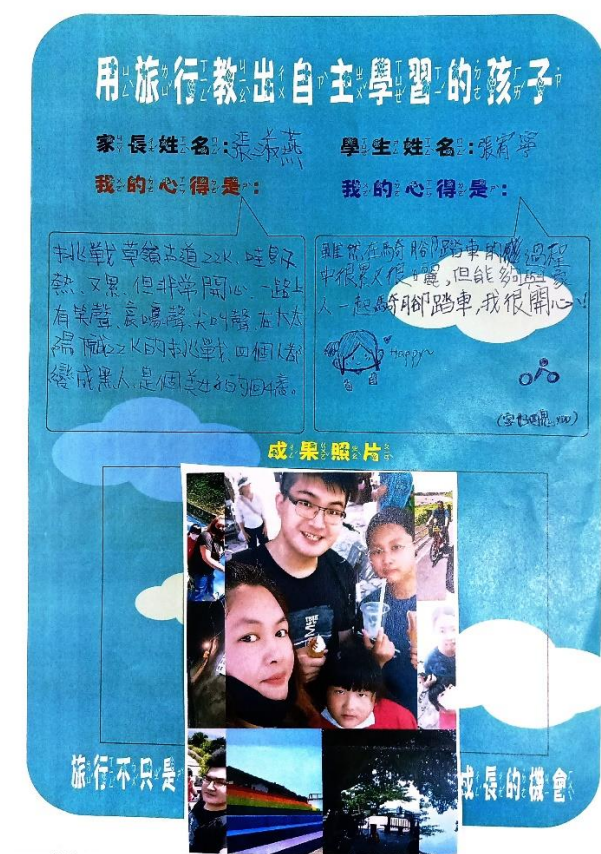 用旅行教出自主學習的孩子
家長姓名：張淑燕
學生姓名：張甯寧
我的心得是：
挑戰草嶺古道22K，哇！好
熱、又累，但非常開心，一路上
有笑聲、哀嚎聲、尖叫聲，在大太
陽 22K的挑戰，四個人都
變成黑人，是個美好的回憶。
我的心得是：
雖然在騎腳踏車的過程
中很累又很曬，但能夠與家
人一起騎腳踏車，我很開心！
Happy~
成果照片
旅行不只是
成長的機會